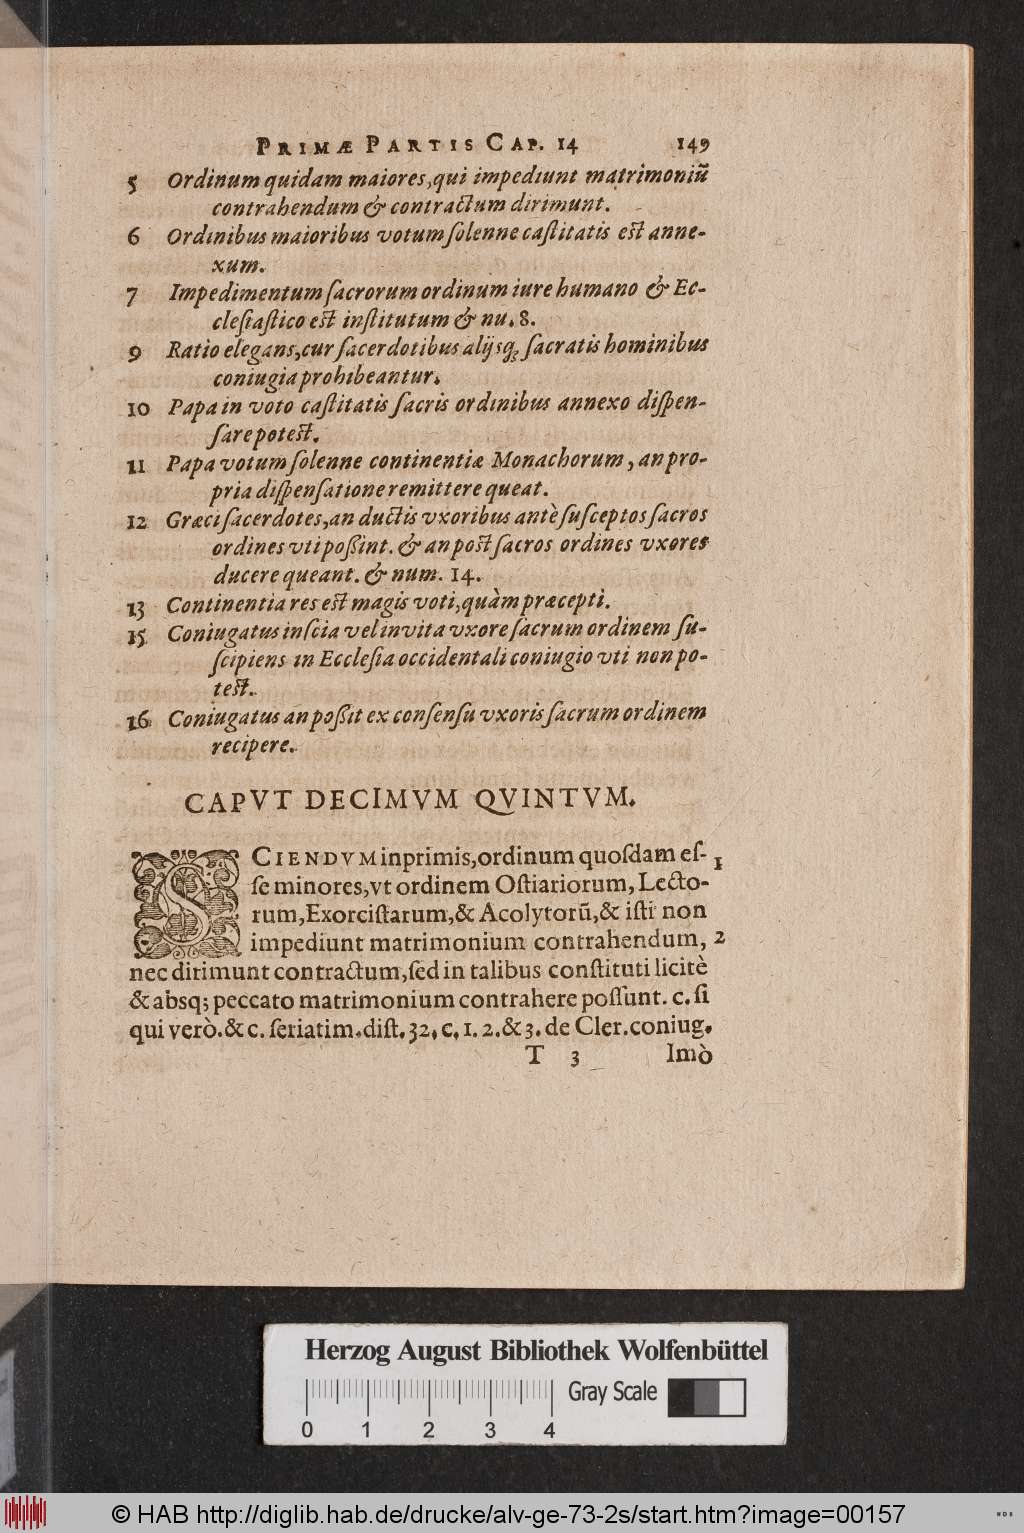 PRIMÆ PARTIS CAP. 14 149
5 Ordinum quidam maiores, qui impediunt matrimoniũ
contrahendum & contractum dirimunt.
6 Ordinibus maioribus votum ſolenne caſtitatis eſt anne-
xum.
7 Impedimentum ſacrorum ordinum iure humano & Ec-
cleſiaſtico eſt inſtitutum & nu. 8.
9 Ratio elegans, cur ſacerdotibus alijsq; ſacratis hominibus
coniugia prohibeantur.
10 Papa in voto caſtitatis ſacris ordinibus annexo diſpen-
ſare poteſt.
11 Papa votum ſolenne continentiæ Monachorum, an pro-
pria diſpenſatione remittere queat.
12 Græci ſacerdotes, an ductis vxoribus antè ſuſceptos ſacros
ordines vti poßint. & an poſt ſacros ordines vxores
ducere queant. & num. 14.
13 Continentia res eſt magis voti, quàm præcepti.
15 Coniugatus inſcia vel inuita vxore ſacrum ordinem ſu-
ſcipiens in Eccleſia occidentali coniugio vti non po-
teſt.
16 Coniugatus an poßit ex conſenſu vxoris ſacrum ordinem
recipere.
CAPVT DECIMVM QVINTVM.
SCIENDVM inprimis, ordinum quoſdam eſ- 1
ſe minores, vt ordinem Oſtiariorum, Lecto-
rum, Exorciſtarum, & Acolytorũ, & iſti non
impediunt matrimonium contrahendum, 2
nec dirimunt contractum, ſed in talibus conſtituti licitè
& absq; peccato matrimonium contrahere poſſunt. c. ſi
qui verò. & c. ſeriatim. diſt. 32. c. 1. 2. & 3. de Cler. coniug.
T 3 Imò
Herzog August Bibliothek Wolfenbüttel
Gray Scale
0 1 2 3 4
© HAB http://diglib.hab.de/drucke/alv-ge-73-2s/start.htm?image=00157